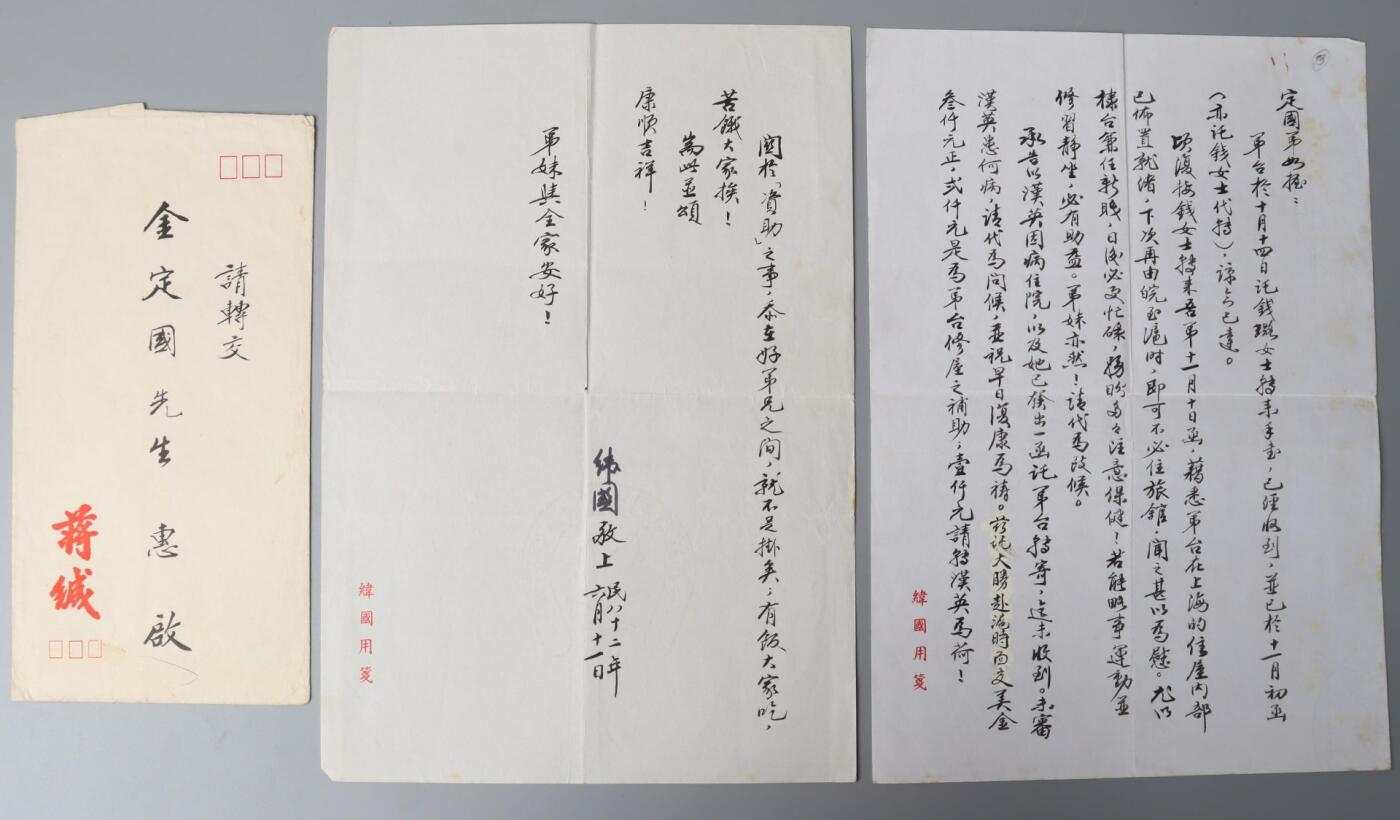 定國弟如握：
弟台於十月十四日託錢璐女士轉來手書，已經收到，並已於十一月初函
（亦託錢女士代轉），諒今已達。
頃復接錢女士轉來吾弟十一月十日函，藉悉弟台在上海的住屋內部
已佈置就緒，下次再由皖至滬時，即可不必住旅館，聞之甚以為慰。尤以
棣台兼任新職，日後必更忙碌，務盼多多注意保健！若能略事運動並
修習靜坐，必有助益。弟妹亦然！請代為致候。
承告以漢英因病住院，以及她已發出一函託弟台轉寄，迄未收到。未審
漢英患何病，請代為問候，並祝早日復康為禱。茲託大勝赴滬時面交美金
叁仟元正，弍仟元是為弟台修屋之補助；壹仟元請轉漢英為荷！
緯國用箋
關於「資助」之事，忝在好弟兄之間，就不足掛矣；有飯大家吃，
苦餓大家挨！
耑此並頌
康順吉祥！
弟妹與全家安好！
緯國敬上
民八十二年
十一日
緯國用箋
請轉交
金定國先生 惠啟
蔣緘